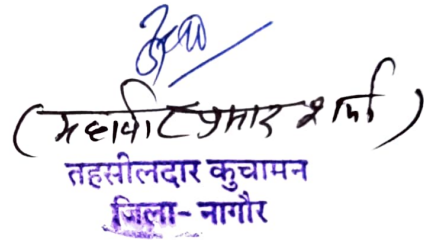 (महावीर कुमार शर्मा)
तहसीलदार कुचामन
जिला-नागौर